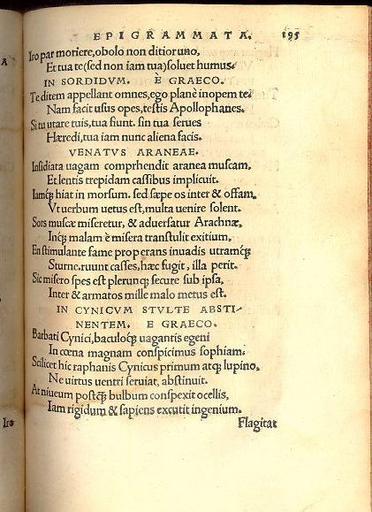 EPIGRAMMATA. 195
Iro par moriere, obolo non ditior uno,
Et tua te (sed non iam tua) soluet humus.
IN SORDIDVM. E GRAECO.
Te ditem appellant omnes, ego planè inopem te.
Nam facit usus opes, testis Apollophanes.
Si tu utare tuis, tua fiunt. sin tua serues
Hæredi, tua iam nunc aliena facis.
VENATVS ARANEAE.
Insidiata uagam comprehendit aranea muscam,
Et lentis trepidam cassibus implicuit.
Iamq́; hiat in morsum. sed sæpe os inter & offam,
Vt uerbum uetus est, multa uenire solent.
Sors muscæ miseretur, & aduersatur Arachnæ,
Inq́; malam è misera transtulit exitium,
En stimulante fame properans inuadis utramq́;
Sturne. ruunt casses, hæc fugit, illa perit.
Sic misero spes est plerunq́; secure sub ipsa,
Inter & armatos mille malo metus est.
IN CYNICVM STVLTE ABSTI-
NENTEM. E GRAECO.
Barbati Cynici, baculoq́; uagantis egeni
In cœna magnam conspicimus sophiam.
Scilicet hic raphanis Cynicus primum atq; lupino,
Ne uirtus uentri seruiat, abstinuit.
At niueum postq́; bulbum conspexit ocellis,
Iam rigidum & sapiens excutit ingenium.
Flagitat
Iro
A